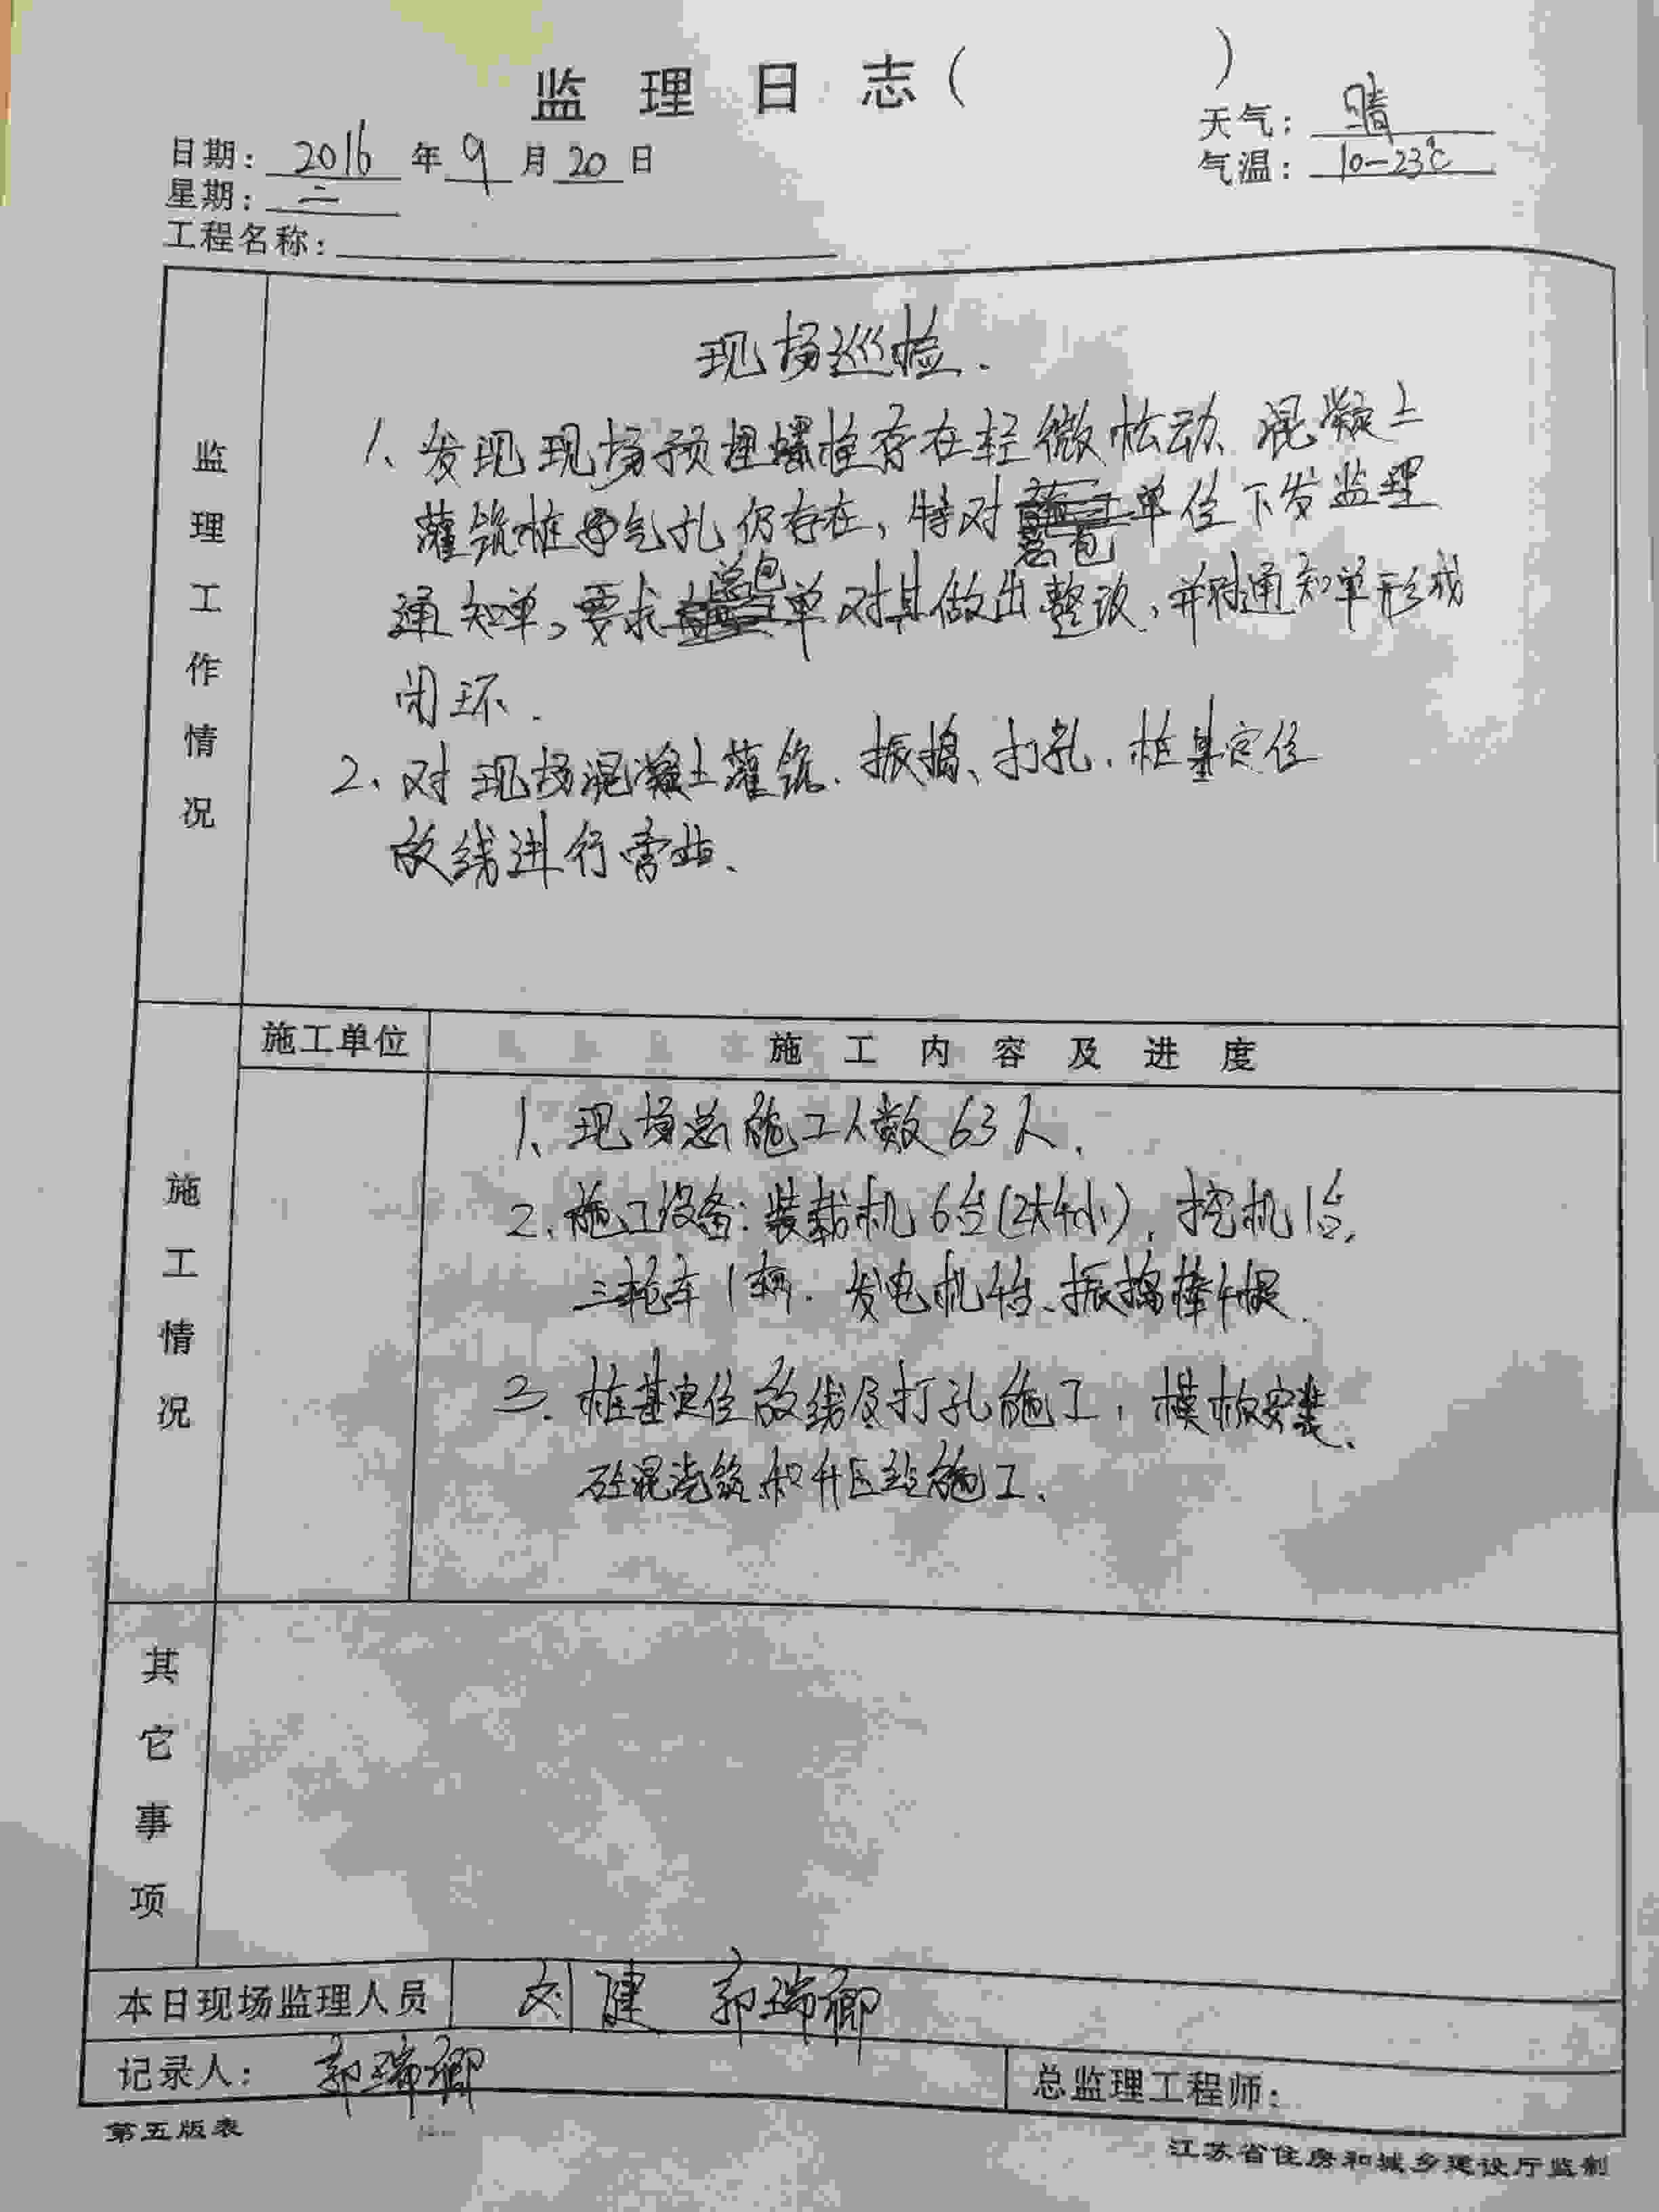 监理日志（ ）
天气：晴
日期：2016年9月20日
气温：10-23℃
星期：二
工程名称：
监理工作情况
现场巡检.
1、发现现场预埋螺栓存在轻微松动、混凝土
灌筑桩 气孔仍存在，特对总包单位下发监理
通知单，要求总包单对其做出整改，并对通知单形成
闭环.
2、对现场混凝土灌筑、振捣、打孔、桩基定位
放线进行旁站、
施工情况
施工单位
施工内容及进度
1、现场总施工人数63人.
2.施工设备：装载机6台(2大4小)，挖机1台，
三轮车1辆.发电机4台、振捣棒4根.
3.桩基定位放线及打孔施工，模板安装、
砼混浇筑和升压站施工、
其它事项
本日现场监理人员 刘建 郭瑞卿
记录人：郭瑞卿
总监理工程师：
第五版表
江苏省住房和城乡建设厅监制